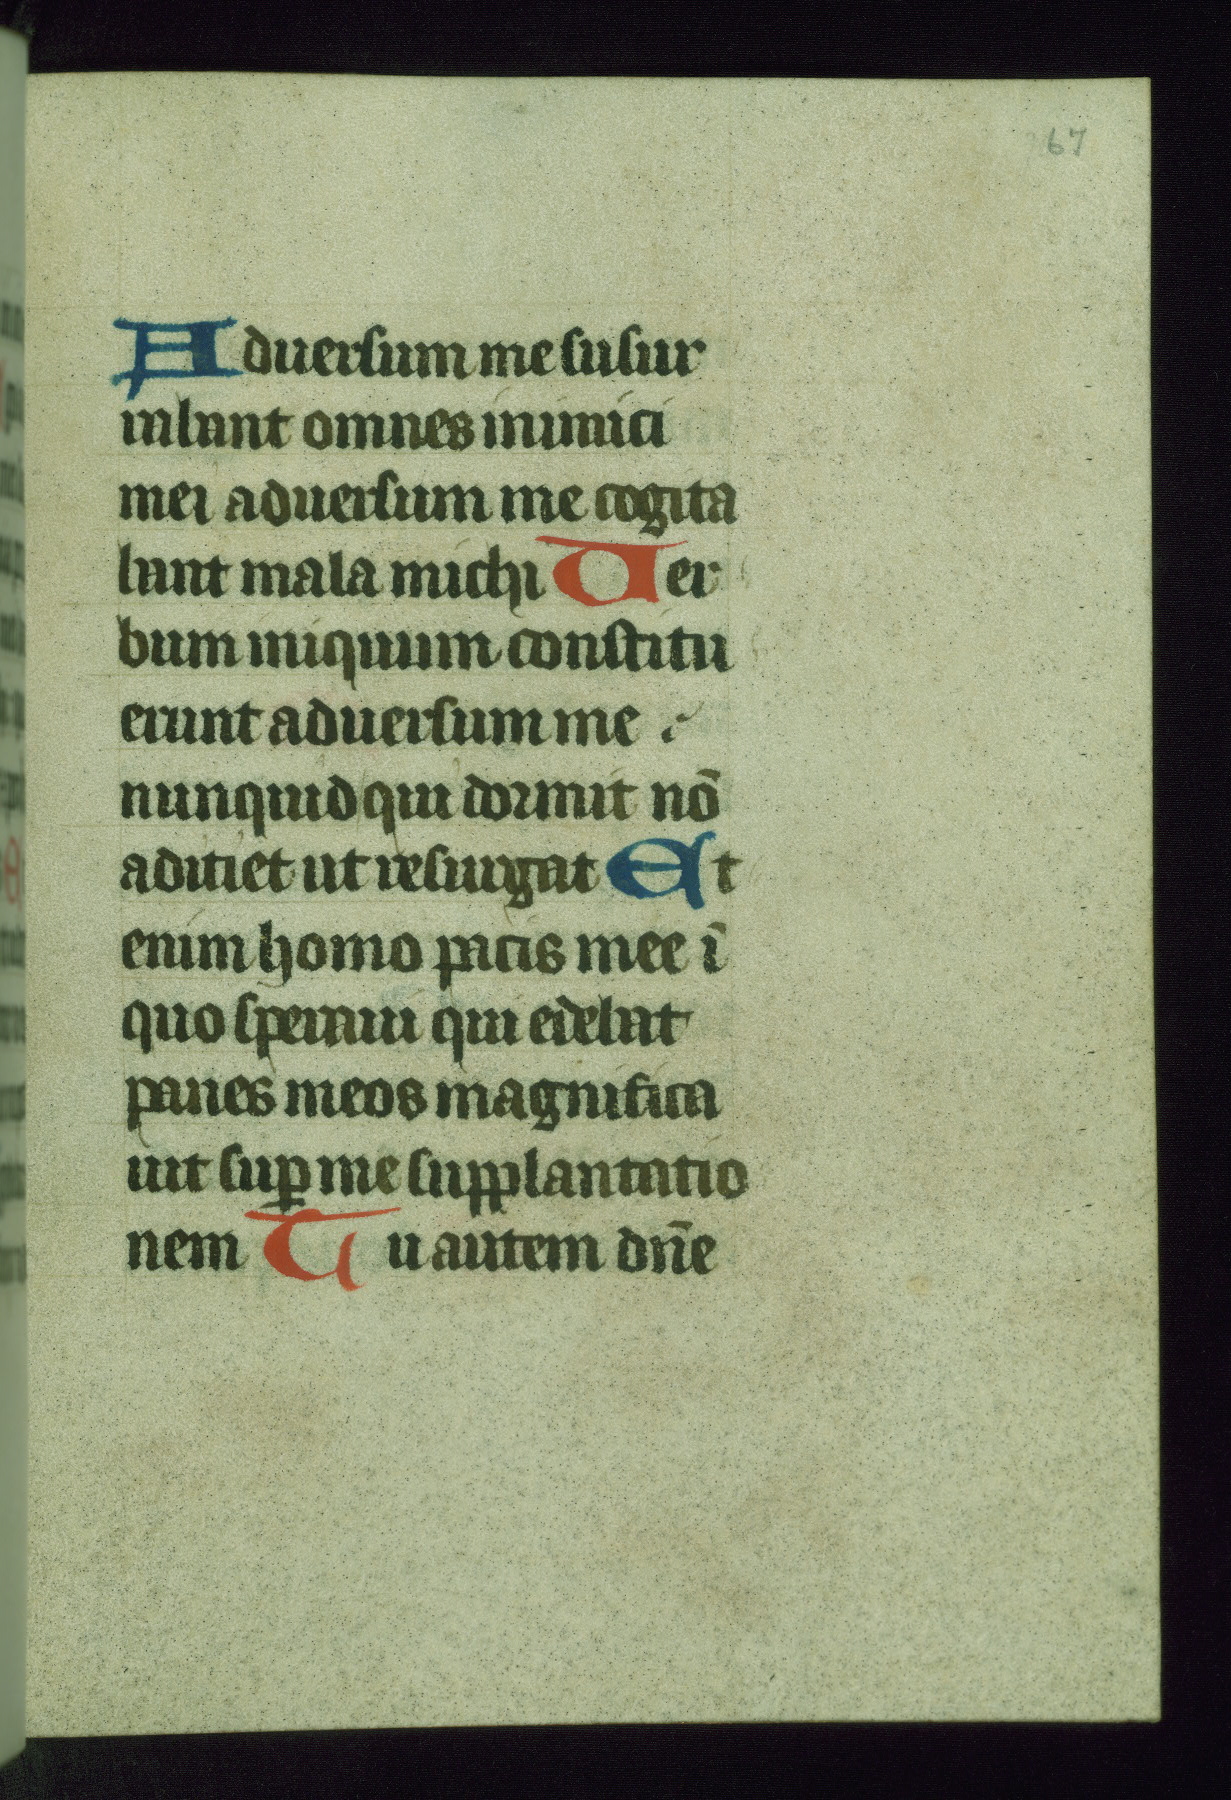 67
Aduersum me susur
rabant omnes inimici
mei aduersum me cogita
bant mala michi Uer
bum iniquum constitu
erunt aduersum me
nunquid qui dormit nō
adiciet ut resurgat Et
enim homo pacis mee ī
quo speraui qui edebat
panes meos magnifica
uit suꝑ me supplantatio
nem Tu autem dn̄e